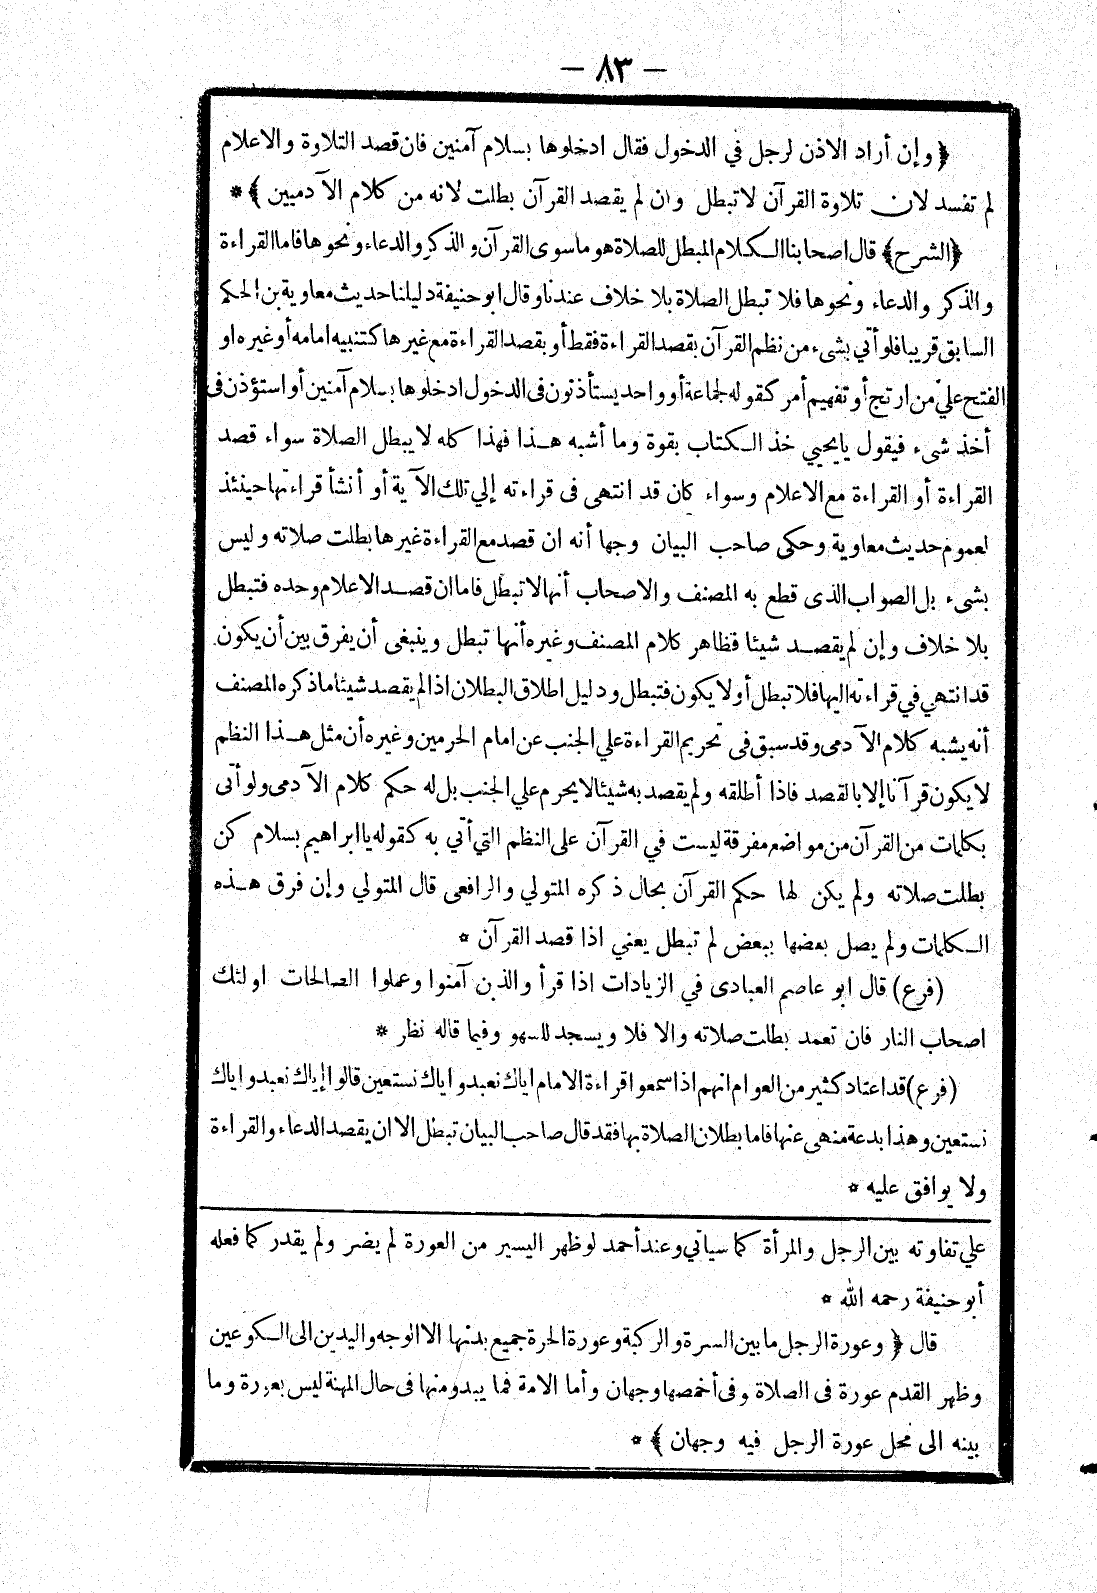 — ٨٣ —
﴿ وإن أراد الاذن لرجل في الدخول فقال ادخلوها بسلام آمنين فان قصد التلاوة والاعلام
لم تفسد لان تلاوة القرآن لا تبطل وان لم يقصد القرآن بطلت لانه من كلام الآدميين ﴾ *
﴿الشرح﴾ قال اصحابنا الكلام المبطل للصلاة هو ما سوى القرآن والذكر والدعاء ونحوها فاما القراءة
والذكر والدعاء ونحوها فلا تبطل الصلاة بلا خلاف عندنا وقال ابو حنيفة دليلنا حديث معاوية بن الحكم
السابق قريبا فلو أتي بشىء من نظم القرآن بقصد القراءة فقط أو بقصد القراءة مع غيرها كتنبيه امامه أو غيره او
الفتح علي من ارتج أو تفهيم أمر كقوله لجماعة أو واحد يستأذنون فى الدخول ادخلوها بسلام آمنين أو استؤذن فى
أخذ شىء فيقول يايحيي خذ الكتاب بقوة وما أشبه هذا فهذا كله لا يبطل الصلاة سواء قصد
القراءة أو القراءة مع الاعلام وسواء كان قد انتهى فى قراءته إلي تلك الآية أو أنشأ قراءتها حينئذ
لعموم حديث معاوية وحكى صاحب البيان وجها أنه ان قصد مع القراءة غيرها بطلت صلاته وليس
بشىء بل الصواب الذى قطع به المصنف والاصحاب أنها لا تبطل فاما ان قصد الاعلام وحده فتبطل
بلا خلاف وإن لم يقصد شيئا فظاهر كلام المصنف وغيره أنها تبطل وينبغى أن يفرق بين أن يكون
قد انتهي في قراءته اليها فلا تبطل أو لا يكون فتبطل ودليل اطلاق البطلان اذا لم يقصد شيئا ما ذكره المصنف
أنه يشبه كلام الآدمى وقد سبق فى تحريم القراءة علي الجنب عن امام الحرمين وغيره أن مثل هذا النظم
لا يكون قرآنا إلا بالقصد فاذا أطلقه ولم يقصد به شيئا لا يحرم علي الجنب بل له حكم كلام الآدمى ولو أتى
بكلمات من القرآن من مواضع مفرقة ليست في القرآن على النظم التي أتي به كقوله يا ابراهيم بسلام كن
بطلت صلاته ولم يكن لها حكم القرآن بحال ذكره المتولي والرافعى قال المتولي وإن فرق هذه
الكلمات ولم يصل بعضها ببعض لم تبطل يعني اذا قصد القرآن *
(فرع) قال ابو عاصم العبادى في الزيادات اذا قرأ والذين آمنوا وعملوا الصالحات اولئك
اصحاب النار فان تعمد بطلت صلاته والا فلا ويسجد للسهو وفيما قاله نظر *
(فرع) قد اعتاد كثير من العوام انهم اذا سمعوا قراءة الامام اياك نعبد واياك نستعين قالوا إياك نعبد واياك
نستعين وهذا بدعة منهى عنها فاما بطلان الصلاة بها فقد قال صاحب البيان تبطل الا ان يقصد الدعاء والقراءة
ولا يوافق عليه *
علي تفاوته بين الرجل والمرأة كما سيأتي وعند أحمد لو ظهر اليسير من العورة لم يضر ولم يقدر كما فعله
أبو حنيفة رحمه الله *
قال ﴿ وعورة الرجل ما بين السرة والركبة وعورة الحرة جميع بدنها الا الوجه واليدين الى الكوعين
وظهر القدم عورة فى الصلاة وفى أخمصها وجهان وأما الامة فما يبدو منها فى حال المهنة ليس بعورة وما
بينه الى محل عورة الرجل فيه وجهان ﴾ *